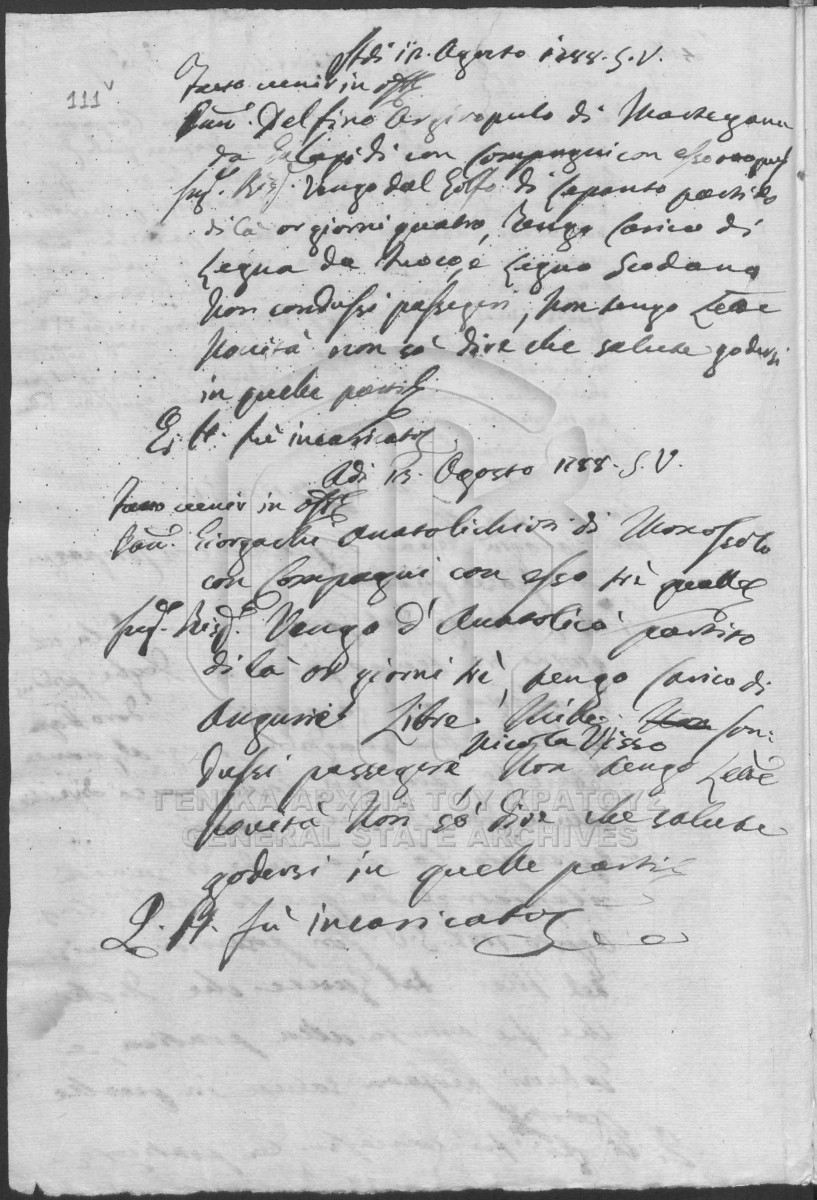 111v
Adi 12. Agosto 1788. S. V.
Fatto venir in Offo
Pan. Delfino Argiropulo di
da Galaxidi con Compagni con esso
Int. Risp. Vengo dal Golfo di Lepanto partito
di là or giorni quatro, Tengo Carico di
Legna da fuoco, e Legno Scodano
Non condussi passegeri, Non tengo Lettre
Novità non sò dire che salute godersi
in quelle parti
Ei H. fù incaricato
Adi 13. Agosto 1788. S. V.
Fatto venir in Offo
Pan. Giorgachi Anatolichioti di Monossolo
con Compagni con esso trè quali
Int. Risp. Vengo d'Anatolicò partito
di là or giorni trè, tengo Carico di
Angurie Libre Mille Non Con:
Nicola Nisso
dussi passegere Non tengo Lettre
novità Non sò dire che salute
godersi in quelle parti
Q. H. fù incaricato
ΓΕΝΙΚΑ ΑΡΧΕΙΑ ΤΟΥ ΚΡΑΤΟΥΣ
GENERAL STATE ARCHIVES